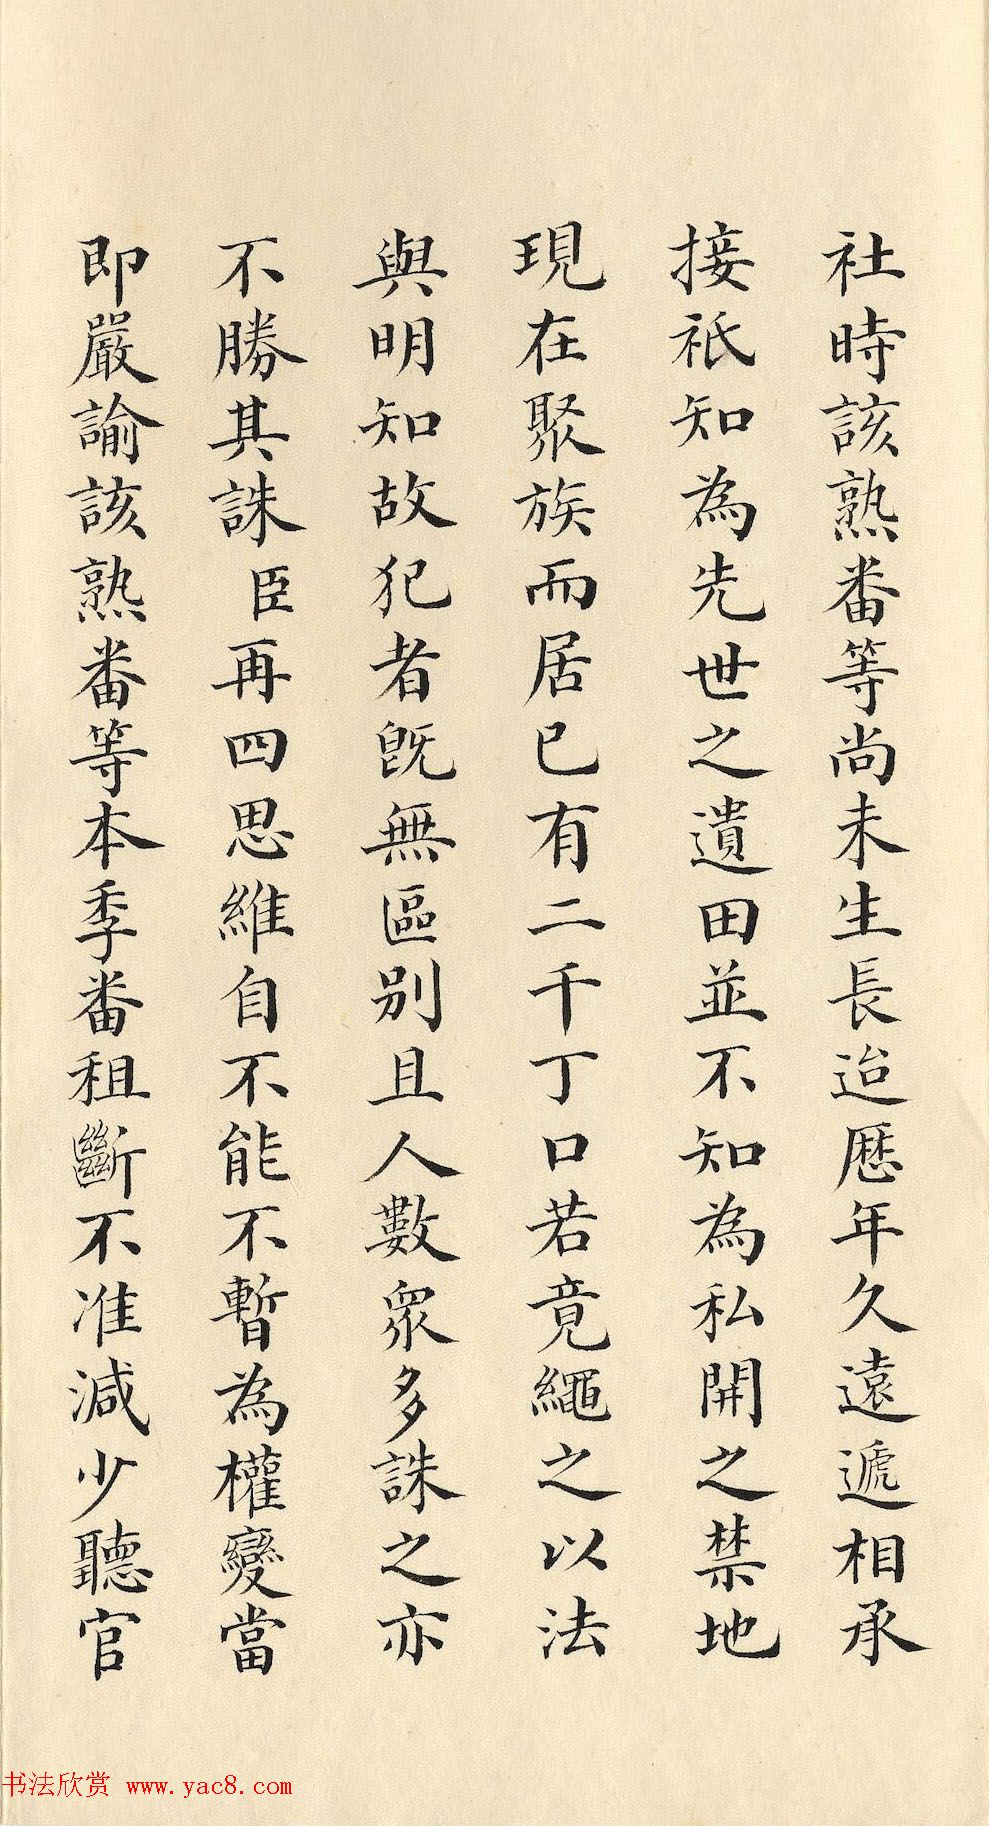 社時該熟番等尚未生長迨歷年久遠遞相承
接祇知為先世之遺田並不知為私開之禁地
現在聚族而居已有二千丁口若竟繩之以法
與明知故犯者既無區別且人數眾多誅之亦
不勝其誅臣再四思維自不能不暫為權變當
即嚴諭該熟番等本季番租斷不准減少聽官
书法欣赏 www.yac8.com